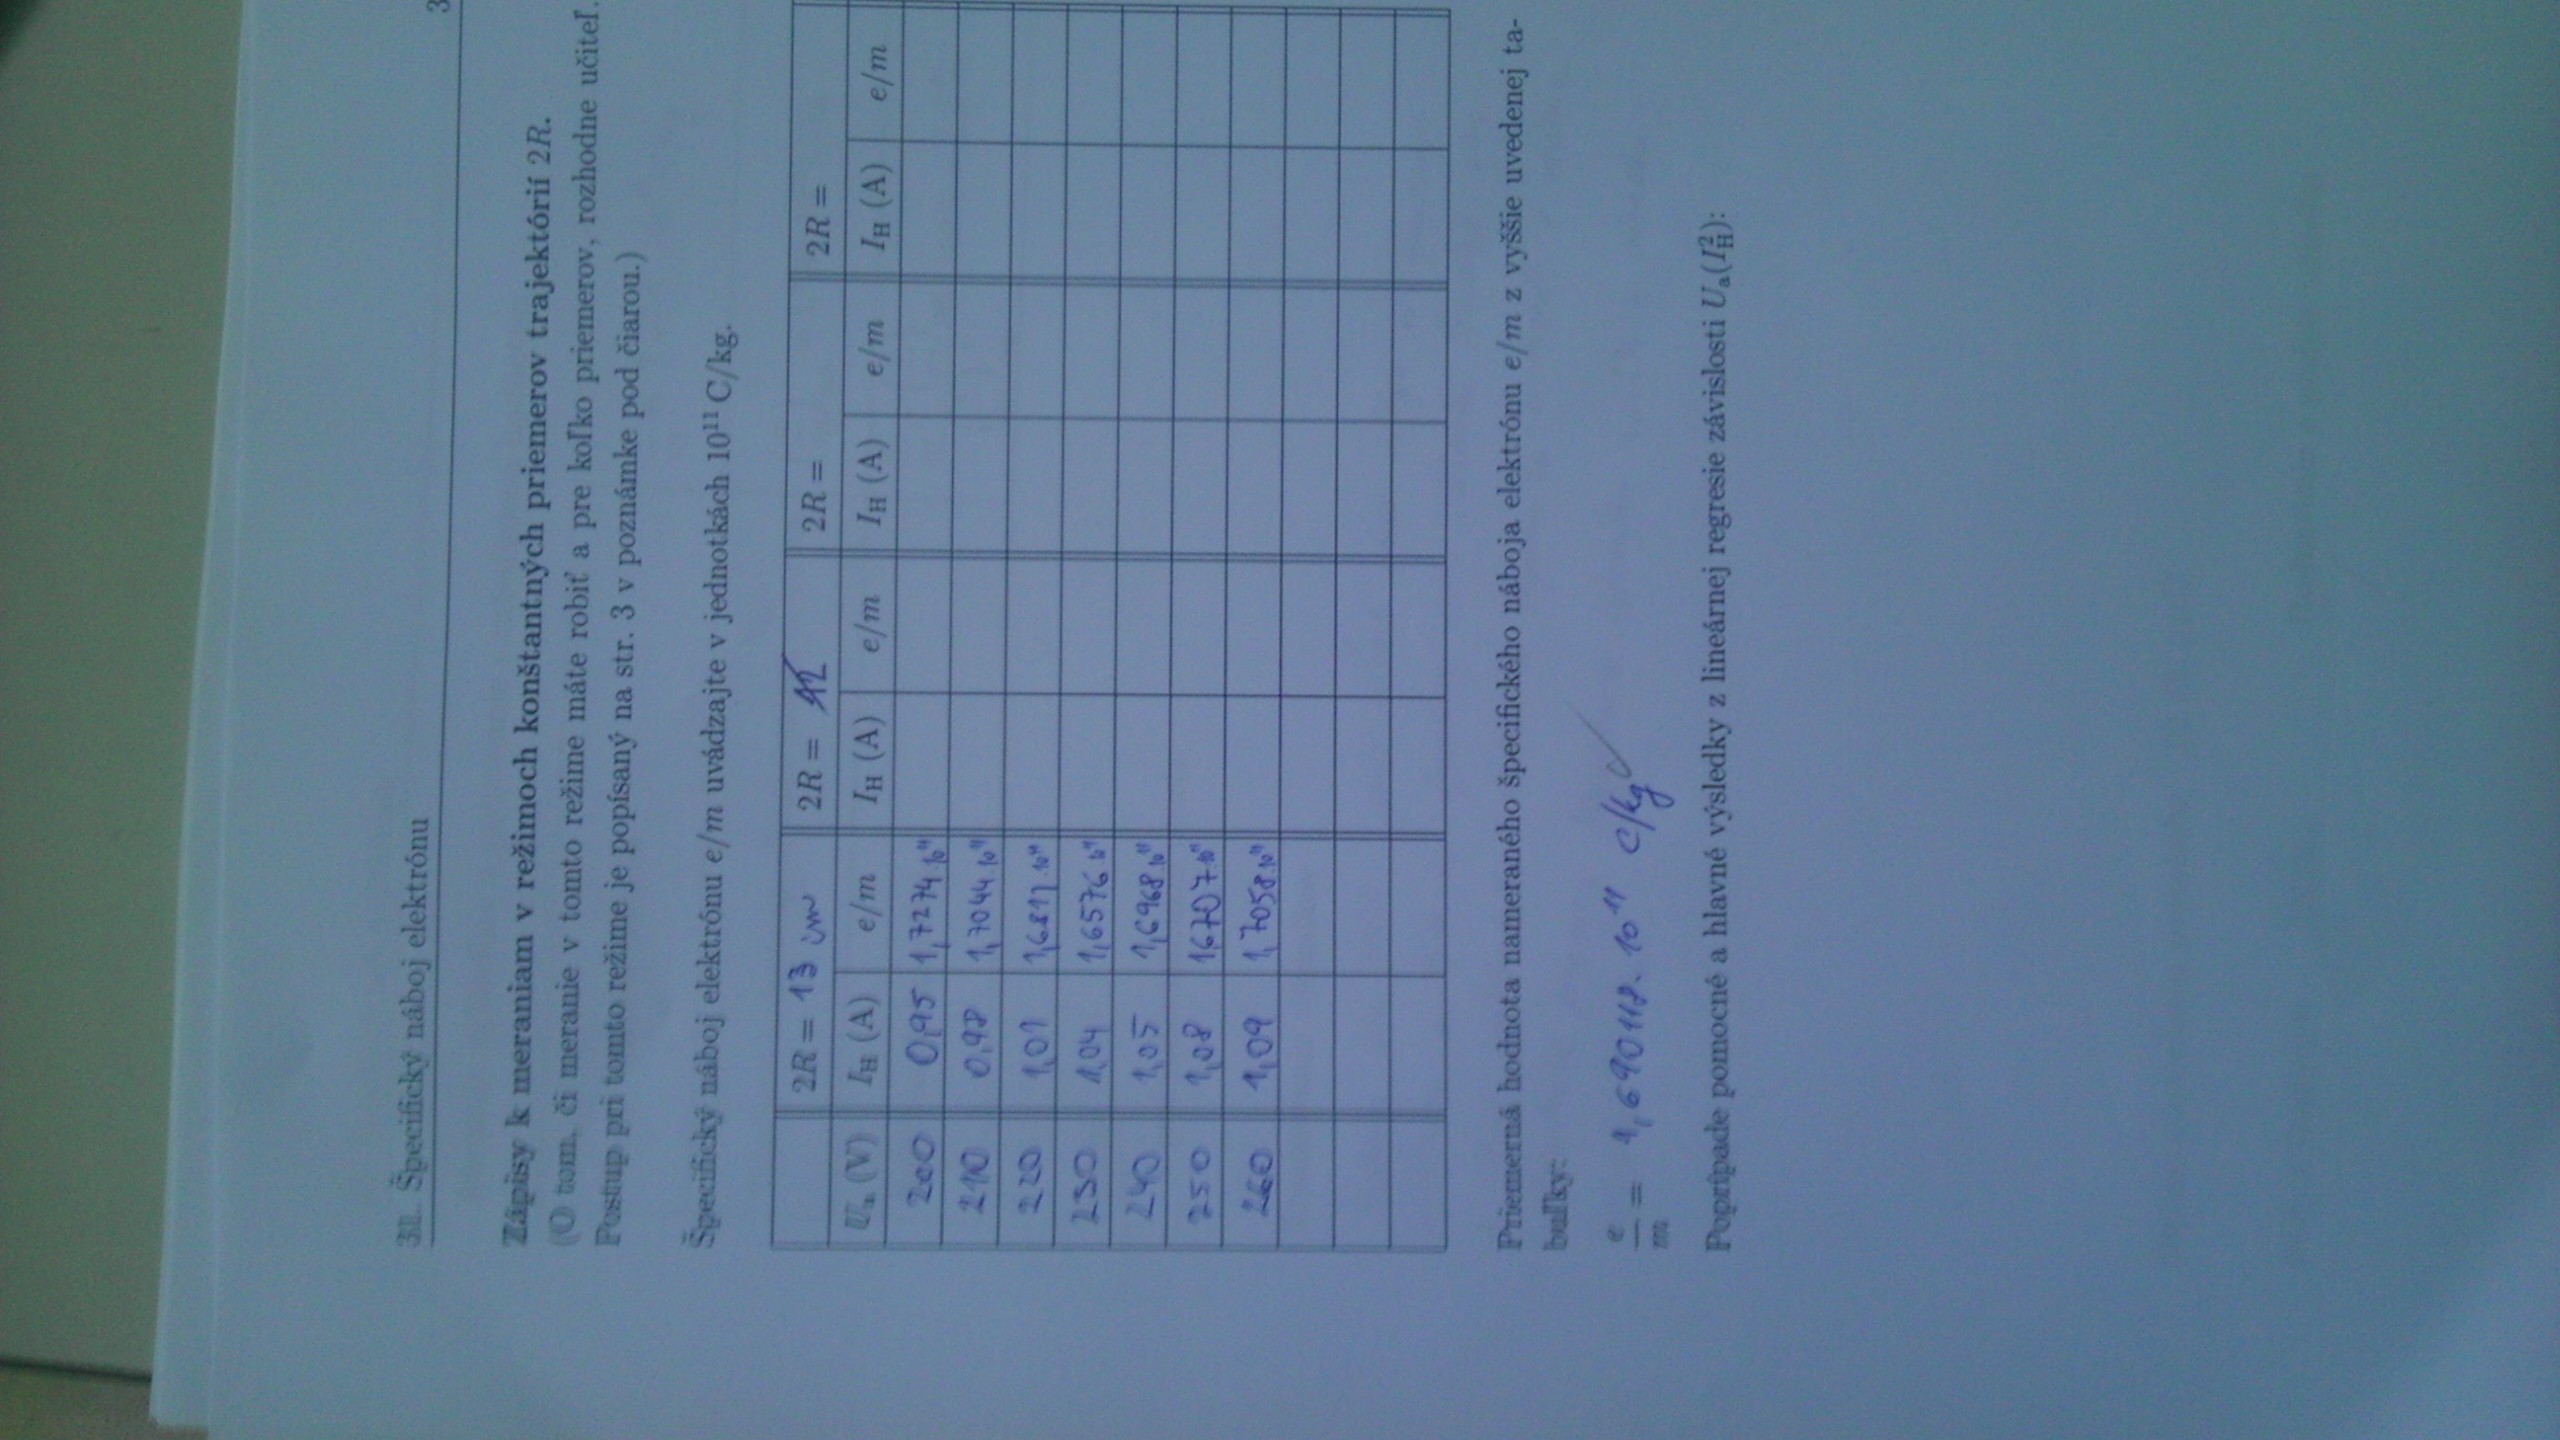 31. Špecifický náboj elektrónu 3
Zápisy k meraniam v režimoch konštantných priemerov trajektórií 2R.
(O tom, či meranie v tomto režime máte robiť a pre koľko priemerov, rozhodne učiteľ.
Postup pri tomto režime je popísaný na str. 3 v poznámke pod čiarou.)
Špecifický náboj elektrónu e/m uvádzajte v jednotkách 10¹¹ C/kg.
2R = 13 cm 2R = 12 2R = 2R =
Uₐ (V) I_H (A) e/m I_H (A) e/m I_H (A) e/m I_H (A) e/m
200 0,95 1,7274.10¹¹
210 0,98 1,7044.10¹¹
220 1,01 1,6811.10¹¹
230 1,04 1,6576.10¹¹
240 1,05 1,6968.10¹¹
250 1,08 1,6707.10¹¹
260 1,09 1,7058.10¹¹
Priemerná hodnota nameraného špecifického náboja elektrónu e/m z vyššie uvedenej ta-
buľky:
e/m = 1,690118.10¹¹ C/kg
Poprípade pomocné a hlavné výsledky z lineárnej regresie závislosti Uₐ(I²_H):